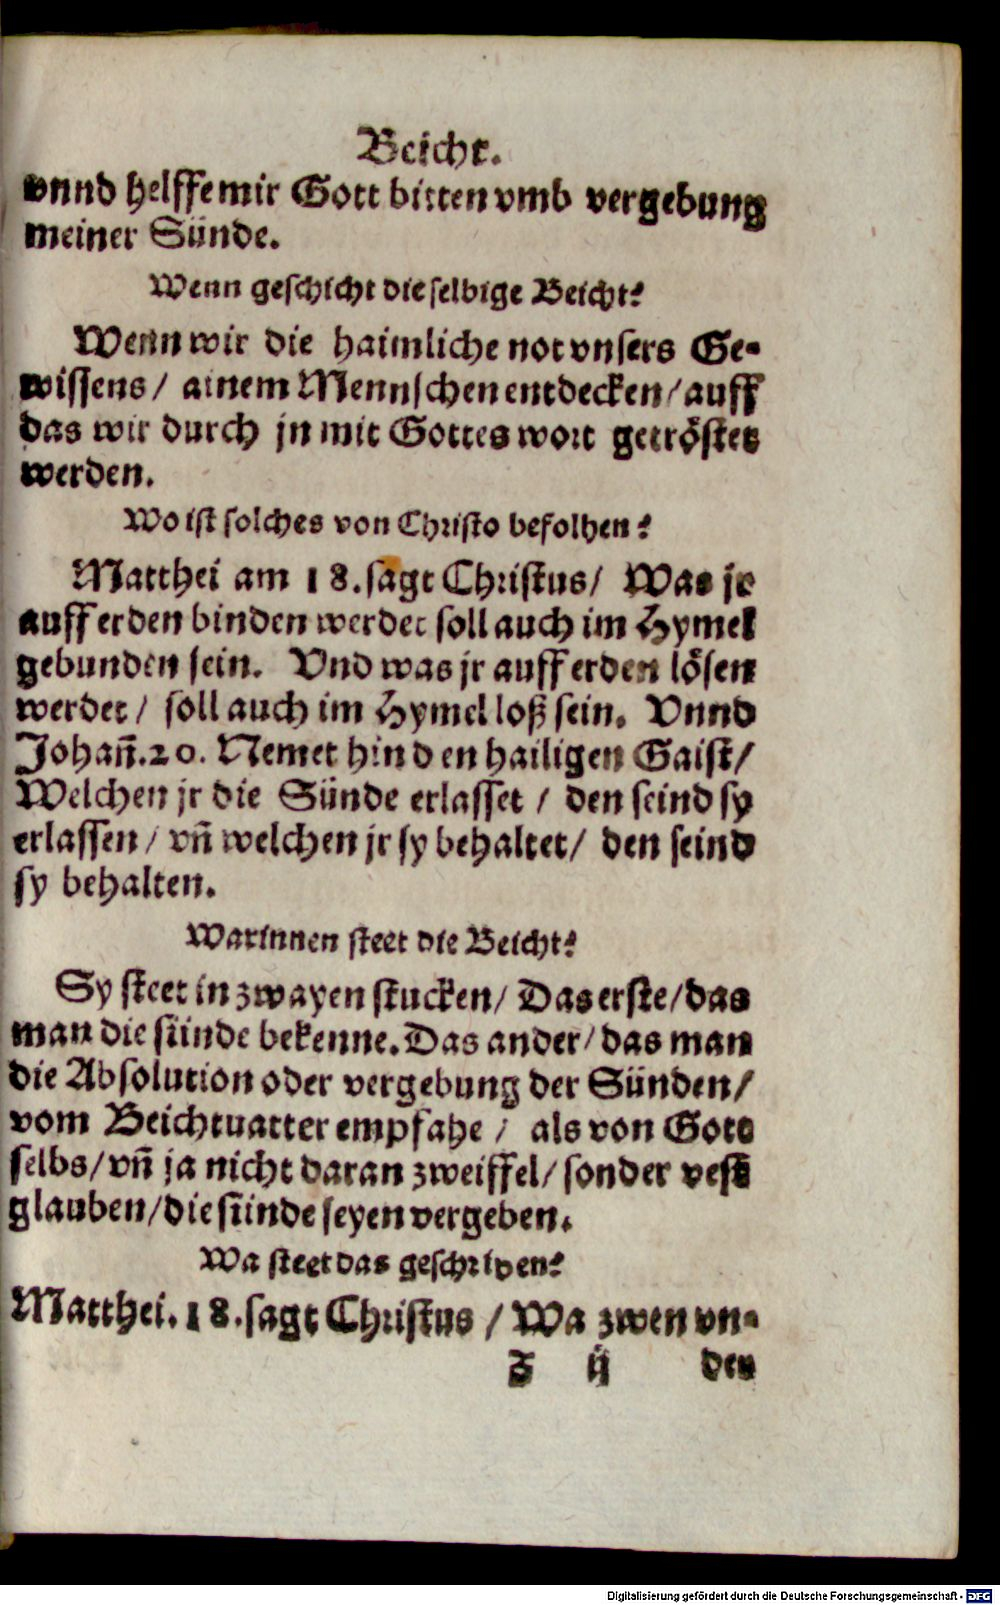 Beicht.
vnnd helffe mir Gott bitten vmb vergebung
meiner Sünde.
Wenn geschicht die selbige Beicht?
Wenn wir die haimliche not vnsers Ge-
wissens / ainem Mennschen entdecken / auff
das wir durch jn mit Gottes wort getröstet
werden.
Wo ist solches von Christo befolhen?
Matthei am 18. sagt Christus / Was jr
auff erden binden werdet soll auch im Hymel
gebunden sein. Vnd was jr auff erden lösen
werdet / soll auch im Hymel loß sein. Vnnd
Johañ. 20. Nemet hin den hailigen Gaist /
Welchen jr die Sünde erlasset / den seind sy
erlassen / vñ welchen jr sy behaltet / den seind
sy behalten.
Warinnen steet die Beicht?
Sy steet in zwayen stucken / Das erste / das
man die sünde bekenne. Das ander / das man
die Absolution oder vergebung der Sünden /
vom Beichtuatter empfahe / als von Gott
selbs / vñ ja nicht daran zweiffel / sonder vest
glauben / die sünde seyen vergeben.
Wa steet das geschriben?
Matthei. 18. sagt Christus / Wa zwen vn-
T ij den
Digitalisierung gefördert durch die Deutsche Forschungsgemeinschaft - DFG